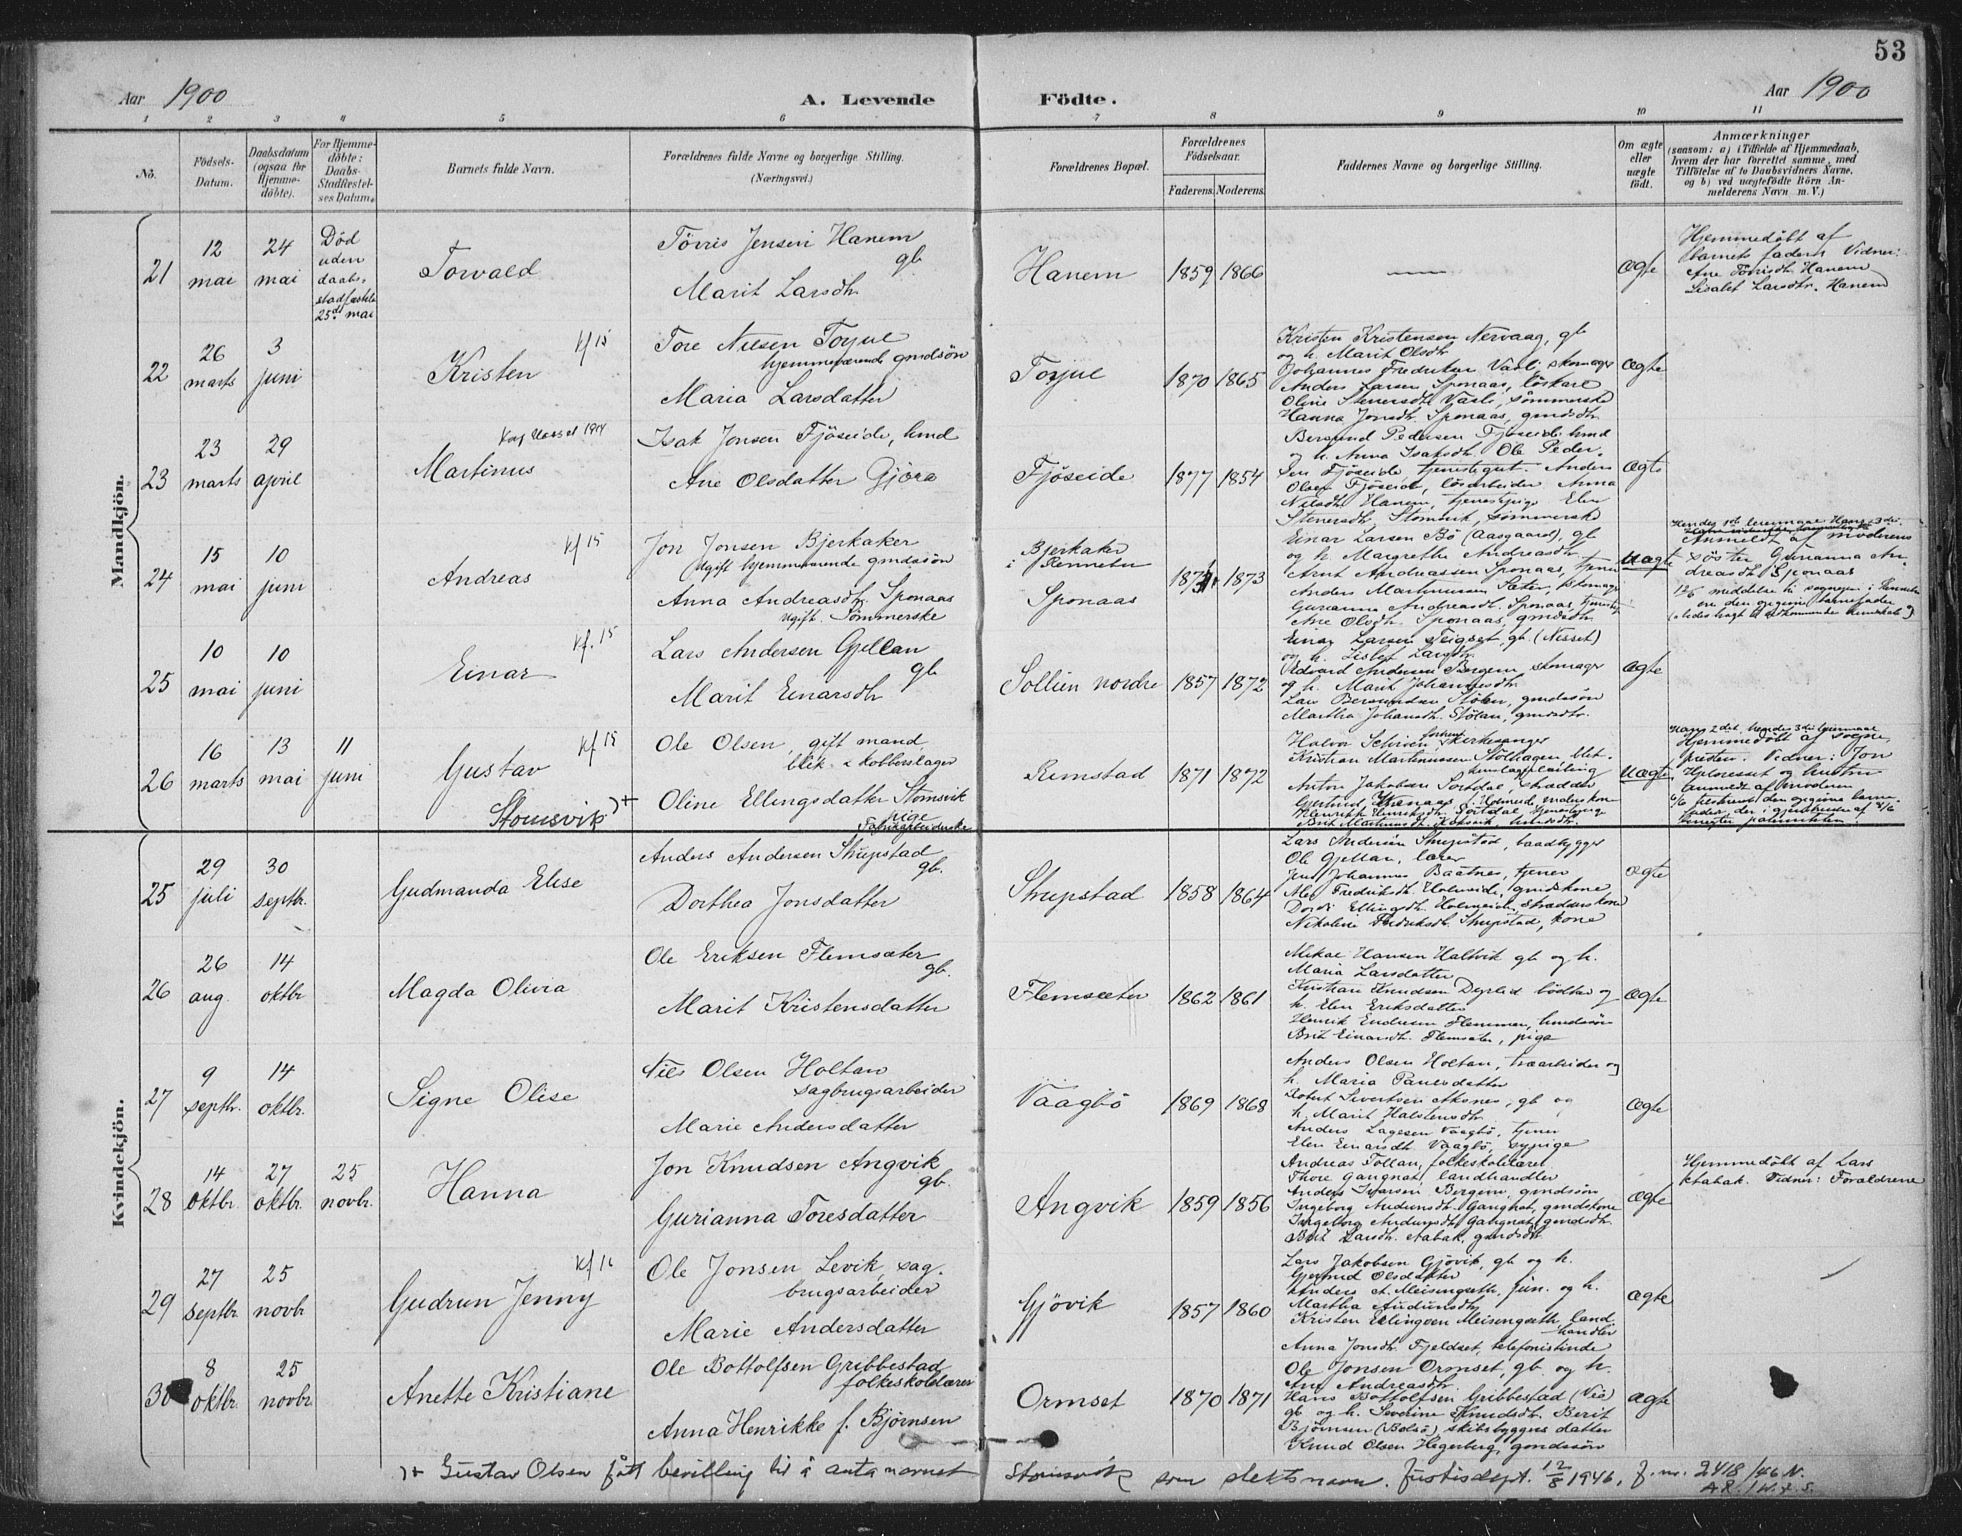 53
Aar 1900 A. Levende Födte. Aar 1900
1 2 3 4 5 6 7 8 9 10 11
No.
Födsels-Datum.
Daabsdatum (ogsaa for Hjemmedöbte).
For Hjemmedöbte: Daabs-Stadfæstelses Datum.
Barnets fulde Navn.
Forældrenes fulde Navne og borgerlige Stilling.
(Næringsvei.)
Forældrenes Bopæl.
Forældrenes Födselsaar.
Faderens. Moderens.
Faddernes Navne og borgerlige Stilling.
Om ægte eller uægte födt.
Anmærkninger
(saasom: a) i Tilfælde af Hjemmedaab,
hvem der har forrettet samme, med
Tilföielse af to Daabsvidners Navne,
og b) ved uægtefödte Börn Anmelderens Navn m. V.)
Mandkjön.
21
12 mai
24 mai
Död uden daabsstadfæstelse 25de mai
Torvald
Törris Jensen Hanem
gb
Marit Larsdtr
Hanem
1859 1866
ægte
Hjemmedöbt af
barnets fader. Vidner:
Ane Törrisdtr. Hanem
Lisabet Larsdtr. Hanem
22
26 marts
3 juni
Kf 15
Kristen
Tore Nilsen Torjul
hjemmeværende gmdsön
Maria Larsdatter
Torjul
1870 1865
Kristen Kristensen Nervaag, gb
og h. Marit Olsdtr.
Johannes Fredriksen Vasli skomager
Anders Larsen Sponaas, löskarl
Oline Stenersdtr Vasli, sömmerske
Hanna Jonsdtr Sponaas, gmdsdtr.
ægte
23
23 marts
29 april
1914
Martinus
Isak Jonsen Fjöseide, hmd
Ane Olsdatter Gjöra
Fjöseide
1877 1854
Bersvend Pedersen Fjöseide hmd
og h. Anna Isaksdtr. Ole Peder-
sen Fjöseide, tjenestegut. Anders
Olsen Fjöseide, lösarbeider Anna
Nilsdtr Hanem, tjenestepige Elen
Stenersdtr. Stomsvik, sömmerske
ægte
24
15 mai
10 juni
Kf 15
Andreas
Jon Jonsen Bjerkaker
ugift hjemmeværende gmdssön
Anna Andreasdtr. Sponaas
ugift. Sömmerske
Bjerkaker
i Rennebu
Sponaas
1873
Einar Larsen Bö (Aasgaard), gb
og h. Margrethe Andreasdtr.
Arnt Andreassen Sponaas, tjener
Anders Martinussen Sæter, skomager
Gurianna Andreasdtr. Sponaas, tjenestepi
Ane Olsdtr. Sponaas, gmdsdtr.
Uægte
Anmeldt af moderens
söster Gurianna An-
dreasdtr Sponaas
25
10 mai
10 juni
Kf. 15
Einar
Lars Andersen Gjellan
gb
Marit Einarsdtr
Sollien nordre
1857 1872
Einar Larsen Teigset, gb. (Nesset)
og h. Lisbet Larsdtr.
Edvard Andersen Bergem, skomager
og h. Marit Johannesdtr.
Lars Bersvendsen Stölen, gmdssön
Martha Johansdtr. Stölan, gmdsdtr.
ægte
26
16 marts
13 mai
11 juni
Kf 15
Gustav
Stomsvik )+
Ole Olsen, gift mand,
blik- & kobberslager
Oline Ellingsdatter Stomsvik
pige
Fabrikarbeiderske
Rimstad
1871 1872
Halvor Schiven kirkesanger
Kristian Martinussen Stolhagen, blik-
kenslagerlærling
Anton Jakobsen Sortdal, skrædder
Uægte
Hjemmedöbt af sogne-
presten. Vidner: Jon
Anmeldt af moderen
Kvindekjön.
25
29 juli
30 septbr.
Gudmanda Elise
Anders Andersen Strupstad
gb.
Dorthea Jonsdatter
Strupstad
1858 1864
Lars Andersen Strupstad, baadbygger
Ole Gjellan, lærer
Jens Johannes Baatnes, tjener
Fredriksdtr. Holmeide, gmdskone
Dordi Ellingsdtr. Holmeide, skrædderskone
Nikoline Fredriksdtr. Strupstad, kone
ægte
26
26 aug.
14 oktbr
Magda Olivia
Ole Eriksen Flemsæter
gb.
Marit Kristensdatter
Flemsæter
1862 1861
Mikal Hansen Haltvik gb og h.
Maria Larsdatter
Kristian Knudsen Dyrlid bödker og
h. Elen Eriksdatter
Henrik Endresen Flemmen, hmdssön
Brit Einarsdtr. Flemsæter, pige
ægte
27
9 septbr.
14 oktbr.
Signe Olise
Nils Olsen Holtan
sagbrugsarbeider
Marie Andersdatter
Vaagbö
1869 1868
Anders Olsen Holtan, træarbeider og
h. Maria Paulsdatter
Robert Sivertsen Aksnes, gb og
h. Marit Halstensdtr.
Anders Lagesen Vaagbö, tjener
Elen Einarsdtr Vaagbö, sypige
ægte
28
14 oktbr.
27 oktbr.
25 novbr.
Hanna
Jon Knudsen Angvik
gb.
Gurianna Toresdatter
Angvik
1859 1856
Andreas Tollan, folkeskolelærer
Thore Gangnat, landhandler
Anders Iversen Bergem, gmdssön
Ingeborg Audunsdtr. Gangnat, gmdskone
Ingeborg Audunsdtr Gangnat, gmdsdtr.
Brit Larsdtr. Aabak, gmdsdtr.
ægte
Hjemmedöbt af Lars
Aabak. Vidner: Forældrene
29
27 septbr
25 novbr
Kf 16
Gudrun Jenny
Ole Jonsen Levik, sag-
brugsarbeider
Marie Andersdatter
Gjövik
1857 1860
Lars Jakobsen Gjövik, gb og h.
Gjertrud Olsdatter
Anders A. Meisingseth, jun. og h.
Martha Audunsdtr.
Kristen Ellingsen Meisingseth, land-
handler
Anna Jonsdtr. Fjeldset, telefonistinde
ægte
30
8 oktbr.
25 novbr.
Anette Kristiane
Ole Bottolfsen Gribbestad
folkeskolelærer
Anna Henrikke f. Björnsen
Ormset
1870 1871
Ole Jonsen Ormset, gb. og h.
Ane Andreasdtr.
Hans Bottolfsen Gribbestad (Veö)
gb og h. Severine Knudsdtr. Berit
Björnsen (Bolsö) skibsbyggers datter
Knud Olsen Hegerberg, gmdssön
ægte
)+ Gustav Olsen fått bevilling til å anta navnet Stomsvik som slektsnavn. Justisdept. 12/8 1946, J. nr. 2418/46 N.